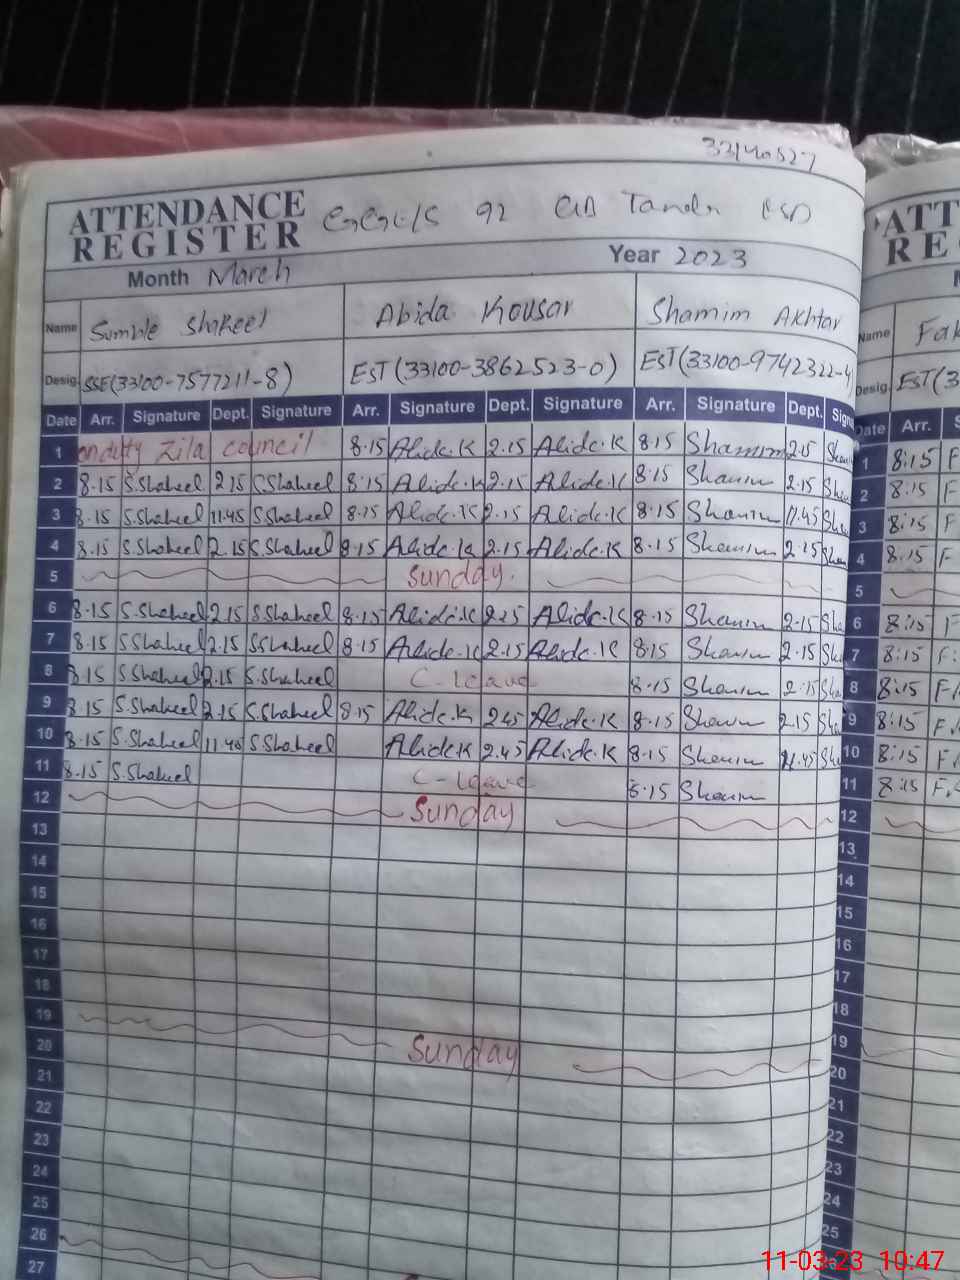 33140527
ATTENDANCE REGISTER 92 Tanda
Month March Year 2023
Name Sumble Shakeel Abida Kousar Shamim Akhtar
Desig. SSE(33100-7577211-8) EST(33100-3862523-0) EST(33100-9742322-4
Date Arr. Signature Dept. Signature Arr. Signature Dept. Signature Arr. Signature Dept.
1 onduty Zila council 8.15 Alide.K 2.15 Alide.K 8.15 Shamim 2.15
2 8.15 S.Shaheel 2.15 S.Shaheel 8.15 Alide.K 2.15 Alide.K 8.15 Shamim 2.15
3 8.15 S.Shaheel 11.45 S.Shaheel 8.15 Alide.K 2.15 Alide.K 8.15 Shamim 11.45
4 8.15 S.Shaheel 2.15 S.Shaheel 8.15 Alide.K 2.15 Alide.K 8.15 Shamim 2.15
5 Sunday.
6 8.15 S.Shaheel 2.15 S.Shaheel 8.15 Alide.K 2.15 Alide.K 8.15 Shamim 2.15
7 8.15 S.Shaheel 2.15 S.Shaheel 8.15 Alide.K 2.15 Alide.K 8.15 Shamim 2.15
8 8.15 S.Shaheel 2.15 S.Shaheel C-leave 8.15 Shamim 2.15
9 8.15 S.Shaheel 2.15 S.Shaheel 8.15 Alide.K 2.45 Alide.K 8.15 Shamim 2.15
10 8.15 S.Shaheel 11.40 S.Shaheel Alide.K 2.45 Alide.K 8.15 Shamim 11.45
11 8.15 S.Shaheel C-leave 8.15 Shamim
12 Sunday
13
14
15
16
17
18
19
20 Sunday
21
22
23
24
25
26
27
ATT
RE
Name Fak
Desig. EST(3
Date Arr.
1 8:15 F
2 8:15 F
3 8:15 F
4 8:15 F
5
6 8:15 F
7 8:15 F
8 8:15 F
9 8:15 F
10 8:15 F
11 8:15 F
12
13
14
15
16
17
18
19
20
21
22
23
24
25
11-03-23 10:47